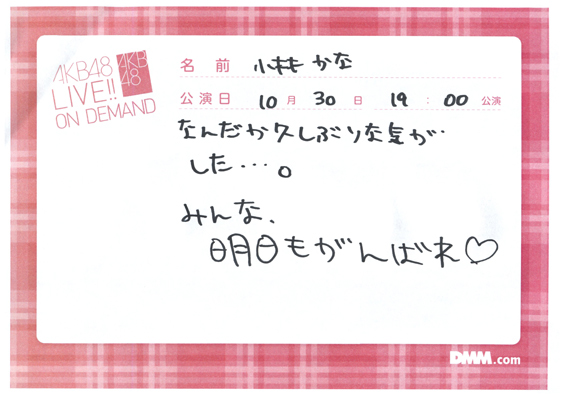 AKB48
LIVE!!
ON DEMAND
AKB
48
名前 小林 かな
公演日 10月 30日 19:00 公演
なんだか久しぶりな気が
した・・・。
みんな、
明日もがんばれ♡
DMM.com